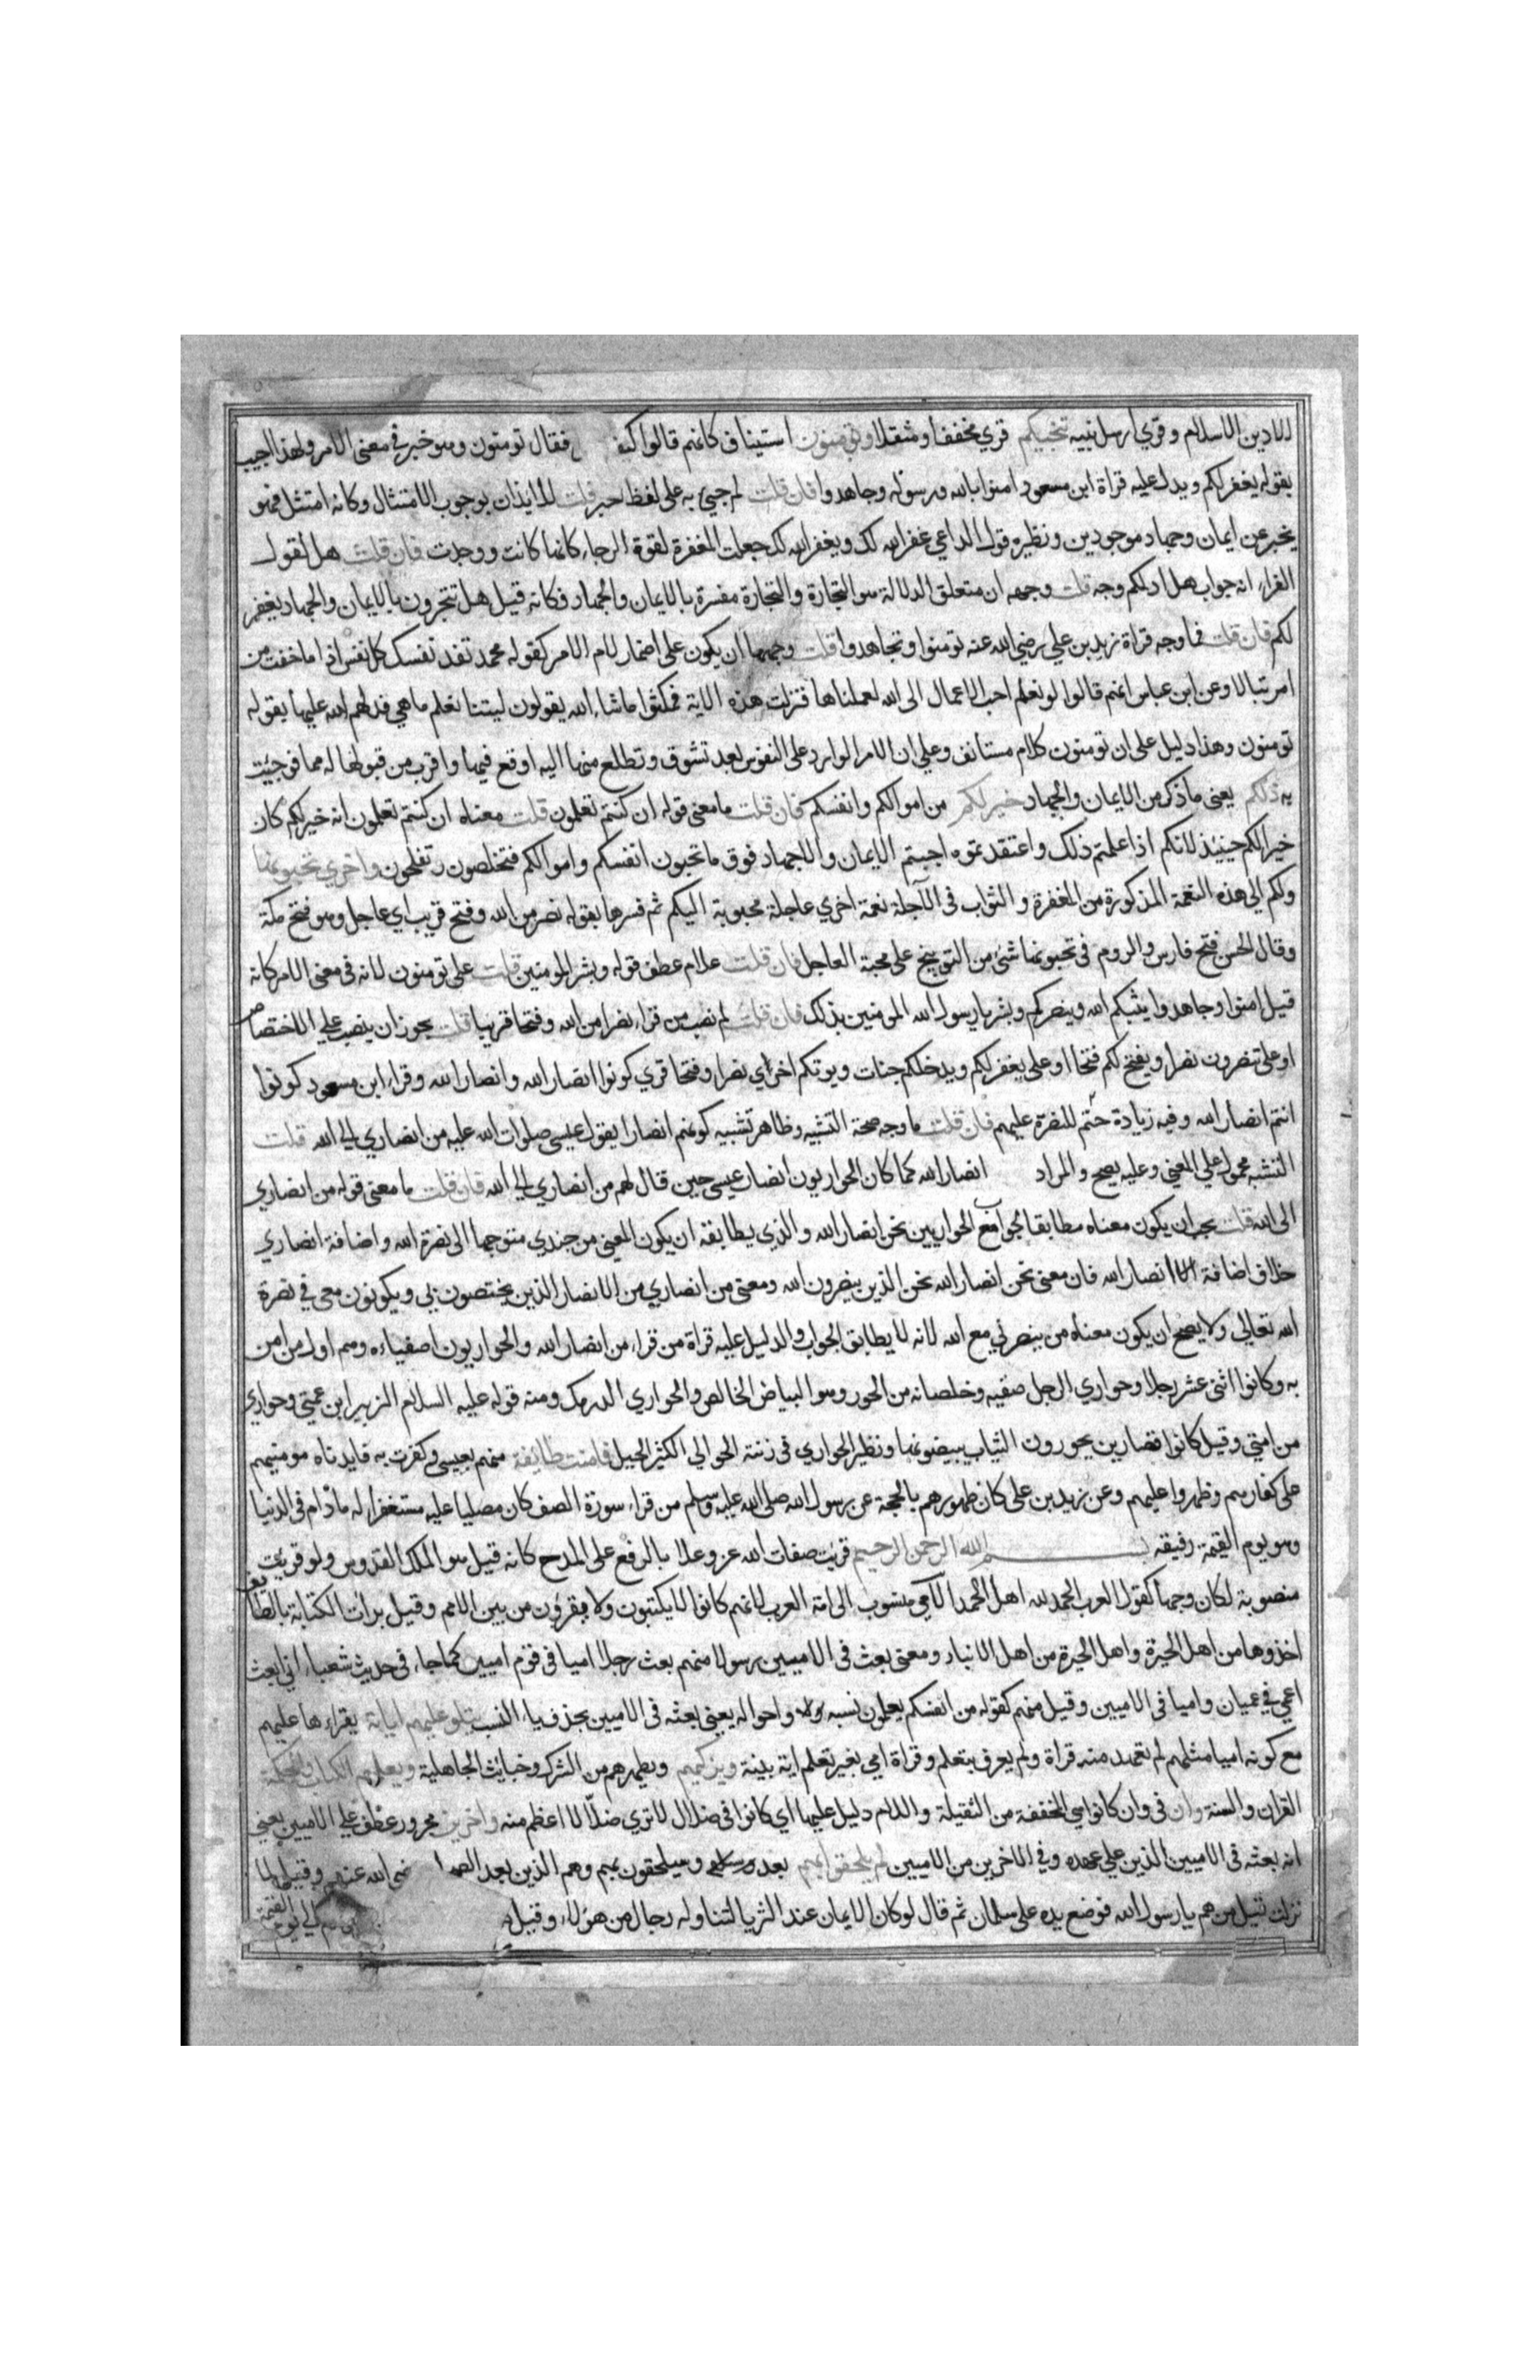 الا دين الاسلام وقري ارسل نبيه تنجيكم قري مخففا ومثقلا وتومنون استيناف كانهم قالوا كيف فقال تومنون وهو خبر في معنى الامر ولهذا اجيب
بقوله يغفر لكم ويدل عليه قراة ابن مسعود امنوا بالله ورسوله وجاهدوا فان قلت لم جيئ به على لفظ خبر قلت للايذان بوجوب الامتثال وكانه امتثل فهو
يخبر عن ايمان وجهاد موجودين ونظيره قول الداعي غفر الله لك ويغفر الله لك جعلت المغفرة لقوة الرجاء كانها كانت ووجدت فان قلت هل لقول
الفراء انه جواب هل ادلكم وجه قلت وجهه ان متعلق الدلالة هو التجارة والتجارة مفسرة بالايمان والجهاد فكانه قيل هل تتجرون بالايمان والجهاد يغفر
لكم فان قلت فما وجه قراة زيد بن علي رضي الله عنه تومنوا وتجاهدوا قلت وجهها ان يكون على اضمار لام الامر كقوله محمد تفد نفسك كل نفس اذا ما خفت من
امر تبالا وعن ابن عباس انهم قالوا لو نعلم احب الاعمال الى الله لعملناها فنزلت هذه الاية فمكثوا ما شاء الله يقولون ليتنا نعلم ما هي فدلهم الله عليها بقوله
تومنون وهذا دليل على ان تومنون كلام مستانف وعلي ان الامر الوارد على النفوس بعد تشوق وتطلع منها اليه اوقع فيها واقرب من قبولها له مما فوجئت
به ذلكم يعني ما ذكر من الايمان والجهاد خير لكم من اموالكم وانفسكم فان قلت ما معنى قوله ان كنتم تعلمون قلت معناه ان كنتم تعلمون انه خير لكم كان
خيرا لكم حينئذ لانكم اذا علمتم ذلك واعتقدتموه احببتم الايمان والاجهاد فوق ما تحبون انفسكم واموالكم فتخلصون وتفلحون واخري تحبونها
ولكم الى هذه النعمة المذكورة من المغفرة والثواب في الآجلة نعمة اخري عاجلة محبوبة اليكم ثم فسرها بقوله نصر من الله وفتح قريب اي عاجل وهو فتح مكة
وقال الحسن فتح فارس والروم في تحبونها شئ من التوبيخ على محبة العاجل فان قلت علام عطف قوله وبشر المومنين قلت على تومنون لانه في معنى الامر كانه
قيل امنوا وجاهدوا يثبكم الله وينصركم وبشر يا رسول الله المومنين بذلك فان قلت لم نصب من قراء نصرا من الله وفتحا قريبا قلت يجوز ان ينصب علي الاختصاص
او على تنصرون نصرا ويفتح لكم فتحا او على يغفر لكم ويدخلكم جنات ويوتكم اخراي نصرا وفتحا قري كونوا انصار الله وانصارا لله وقراء ابن مسعود كونوا
انتم انصار الله وفيه زيادة حتم للنصرة عليهم فان قلت ما وجه صحة التشبيه وظاهر تشبيه كونهم انصارا بقول عيسى صلوات الله عليه من انصاري الى الله قلت
التشبه محمول علي المعنى وعليه يصح والمراد انصار الله كما كان الحواريون انصار عيسى حين قال لهم من انصاري الى الله فان قلت ما معنى قوله من انصاري
الى الله قلت يجب ان يكون معناه مطابقا لجواب الحواريين نحن انصار الله والذي يطابقه ان يكون المعنى من جندي متوجها الى نصرة الله واضافة انصاري
خلاف اضافة انصار الله فان معنى نحن انصار الله نحن الذين ينصرون الله ومعنى من انصاري من الانصار الذين يختصون بي ويكونون معي في نصرة
الله تعالي ولا يصح ان يكون معناه من ينصرني مع الله لانه لا يطابق الجواب والدليل عليه قراة من قراء من انصار الله والحواريون اصفياءه وهم اول من امن
به وكانوا اثنى عشر رجلا وحواري الرجل صفيه وخلصانه من الحور وهو البياض الخالص والحواري الدرمك ومنه قوله عليه السلام الزبير ابن عمتي وحواري
من امتي وقيل كانوا قصارين يحورون الثياب يبيضونها ونظير الحواري في زنته الحوالي الكثير الحيل فامنت طايفة منهم بعيسى وكفرت به فايدناه مومنيهم
على كفارهم وظهروا عليهم وعن زيد بن على كان ظهورهم بالحجة عن رسول الله صلى الله عليه وسلم من قراء سورة الصف كان مصليا عليه مستغفرا له مادام في الدنيا
وهو يوم القيمة رفيقه بسم الله الرحمن الرحيم قريت صفات الله عز وعلا بالرفع على المدح كانه قيل هو الملك القدوس ولو قريت
منصوبة لكان وجها كقول العرب الحمد لله اهل الحمد الامي منسوب الى امة العرب لانهم كانوا لا يكتبون ولا يقرؤن من بين الامم وقيل بدات الكتابة بالطائف
اخذوها من اهل الحيرة واهل الحيرة من اهل الانبار ومعنى بعث في الاميين رسولا منهم بعث رجلا اميا في قوم اميين كما جاء في حديث شعياء اني ابعث
اعمي في عميان واميا في الاميين وقيل منهم كقوله من انفسكم يعلمون نسبه واحواله يعني بعثه في الاميين بحذف ياء النسب يتلو عليهم اياته يقراءها عليهم
مع كونه اميا مثلهم لم تعهد منه قراة ولم يعرف بتعلم وقراة امي بغير تعلم اية بينة ويزكيهم ويطهرهم من الشرك وخبائث الجاهلية ويعلمهم الكتاب والحكمة
القران والسنة وان في وان كانوا هي المخففة من الثقيلة واللام دليل عليها اي كانوا في ضلال لا تري ضلالا اعظم منه واخرين مجرور عطف علي الاميين يعني
انه بعثه في الاميين الذين علي عهده وفي الاخرين من الاميين لم يلحقوا بهم بعد وسيلحقون بهم وهم الذين بعد الصحا ضي الله عنهم وقيل لما
نزلت قيل من هم يا رسول الله فوضع يده على سلمان ثم قال لو كان الايمان عند الثريا لتناوله رجال من هؤلاء وقيل الى يوم القيمة